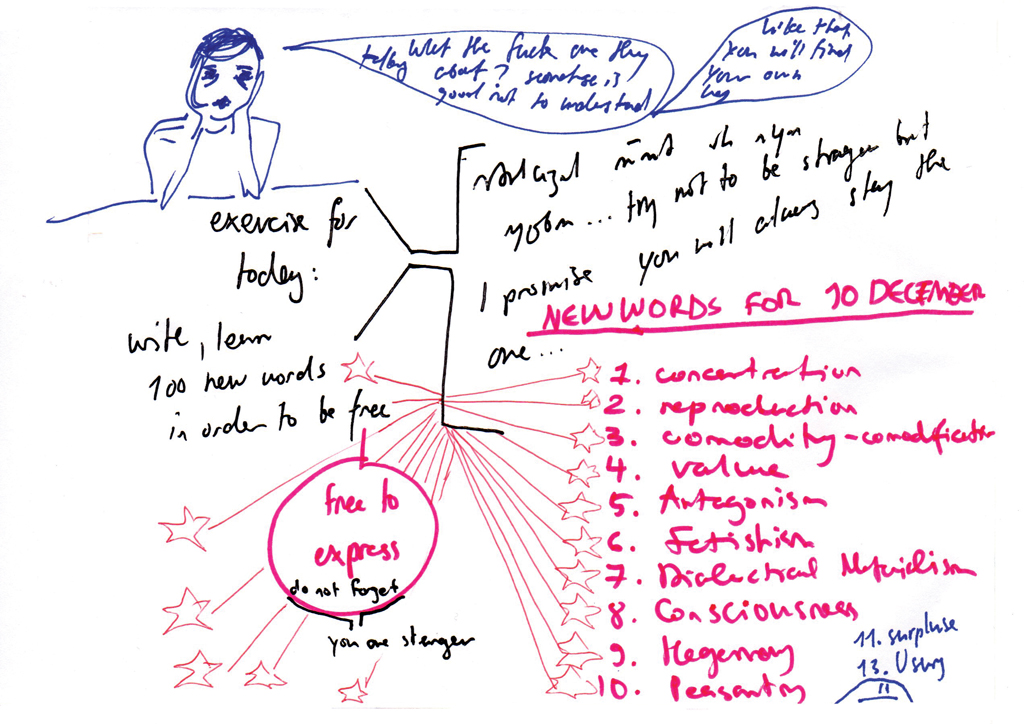 What the fuck are they
talking about? sometimes is
good not to understand
Like that
you will find
your own
exercise for
today:
write, learn
100 new words
in order to be free
try not to be stranger but
I promise you will always stay the
one...
free to
express
do not forget
you are stenger
NEW WORDS FOR 10 DECEMBER
1. concentration
2. reproduction
3. comodity - comodification
4. value
5. Antagonism
6. Fetishism
7. Dialectical Materialism
8. Consciousness
9. Hegemony
10. Peasantry
11. surpluse
13. Usury